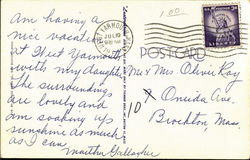 Am having a
nice vacation
at West Yarmouth
with my daught.
The surroundings
are lovely and
I'm soaking up
sunshine as much
as I can
Martha Gallagher
1.00
YARMOUTH
JUL 19
POSTCARD
LIBERTY
Mr & Mrs Oliver Roy
10 Oneida Ave.
Brockton, Mass